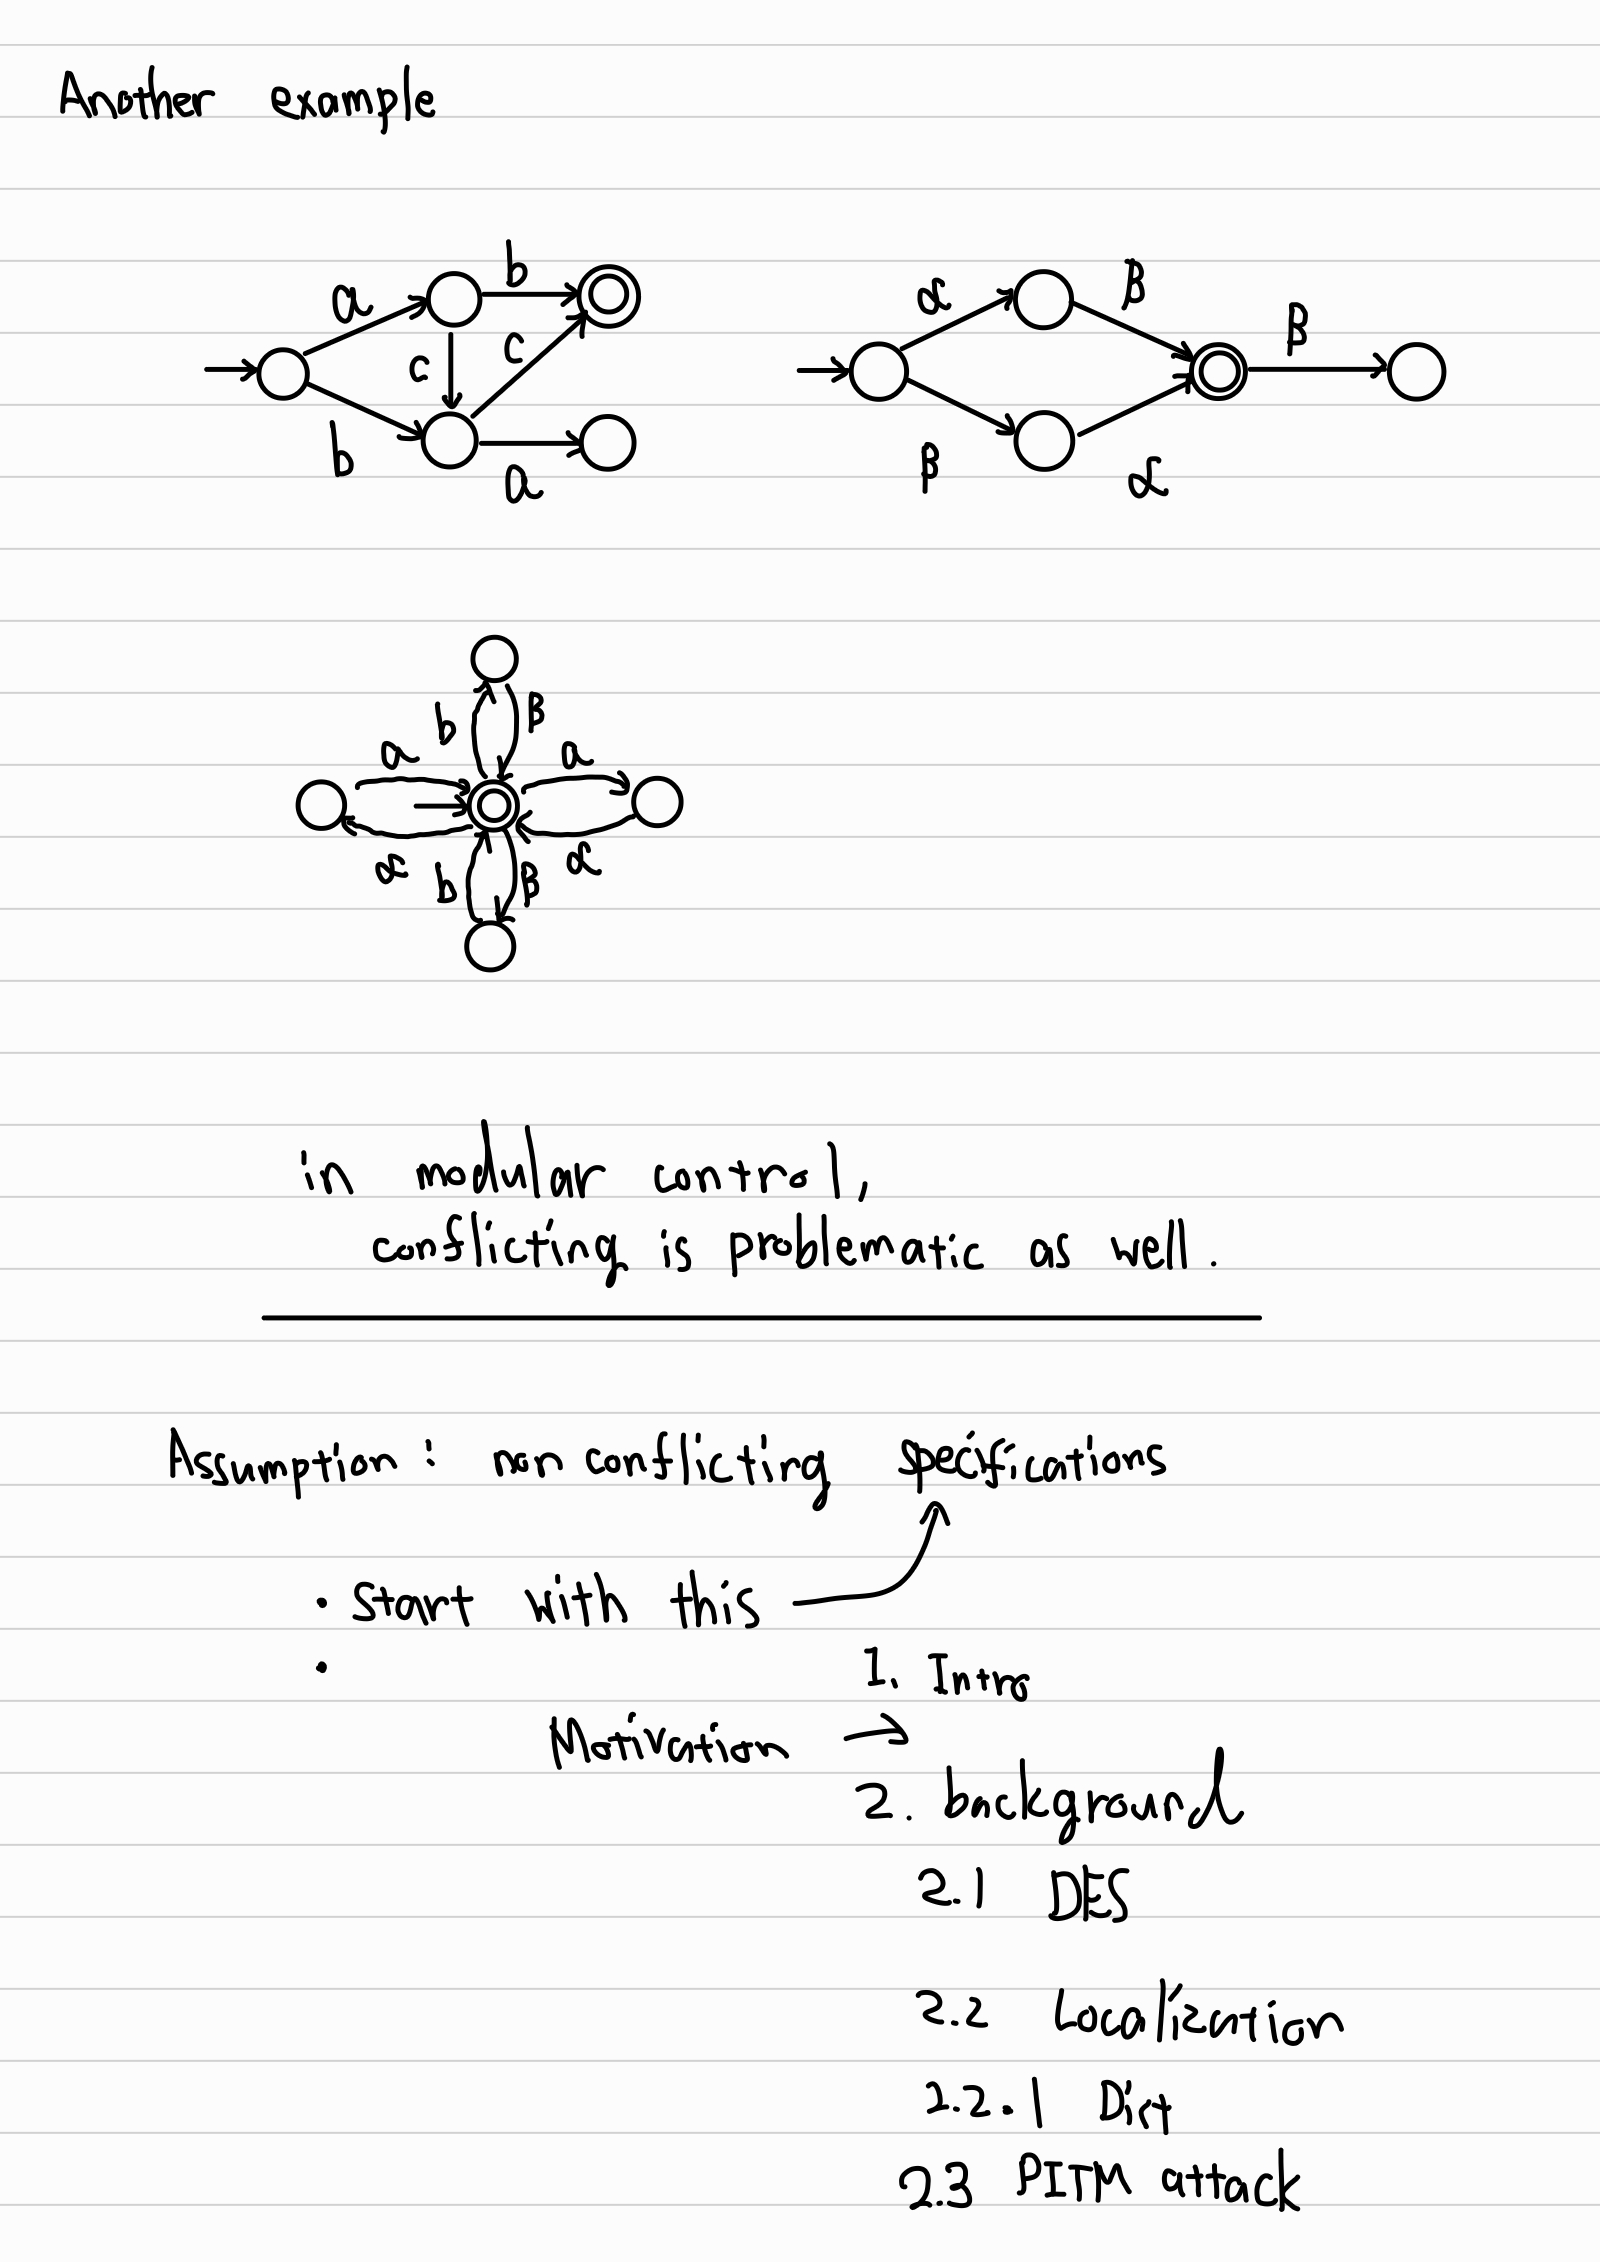 Another example
a b c c b a
α β β β α
b β a a α b β α
in modular control,
conflicting is problematic as well.
Assumption : nonconflicting specifications
• Start with this
•
1. Intro
Motivation →
2. background
2.1 DES
2.2 Localization
2.2.1 Dist
2.3 PITM attack